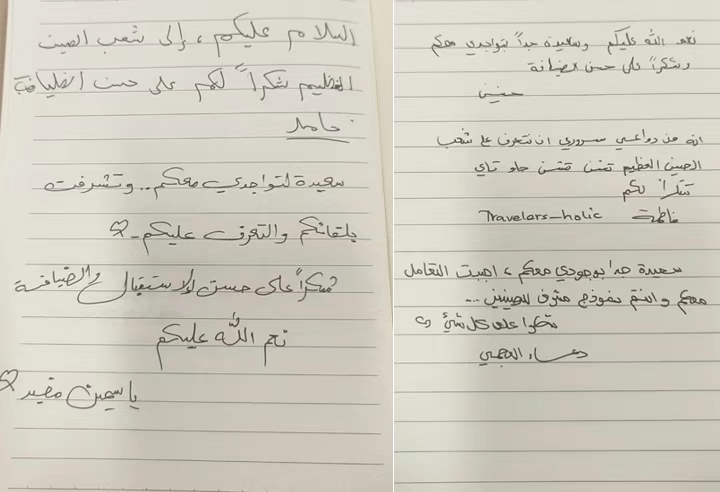 السلام عليكم ، إلى شعب الصين
العظيم شكراً لكم على حسن الضيافة
حامد
سعيدة لتواجدي معكم .. وتشرفت
بلقائكم والتعرف عليكم ـ ♡
شكراً على حسن الاستقبال و الضيافة
نعم الله عليكم
ياسمين مفيد ♡
نعم الله عليكم وسعيدة جداً بتواجدي معكم
وشكراً على حسن الضيافة
حنين
انه من دواعي سروري ان نتعرف على شعب
الصين العظيم
شكراً لكم
فاطمة Travelers-holic
سعيدة جداً بوجودي معكم ، احببت التعامل
معكم و انتم نموذج مشرف للصينين ...
شكراً على كل شئ ♡
دعاء